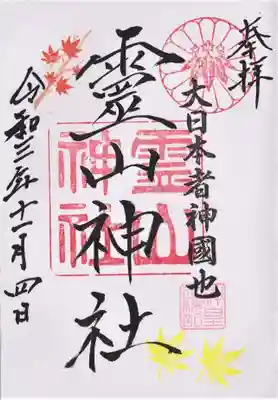 奉拝
大日本者神國也
霊山
神社
靈山神社
令和三年十一月四日